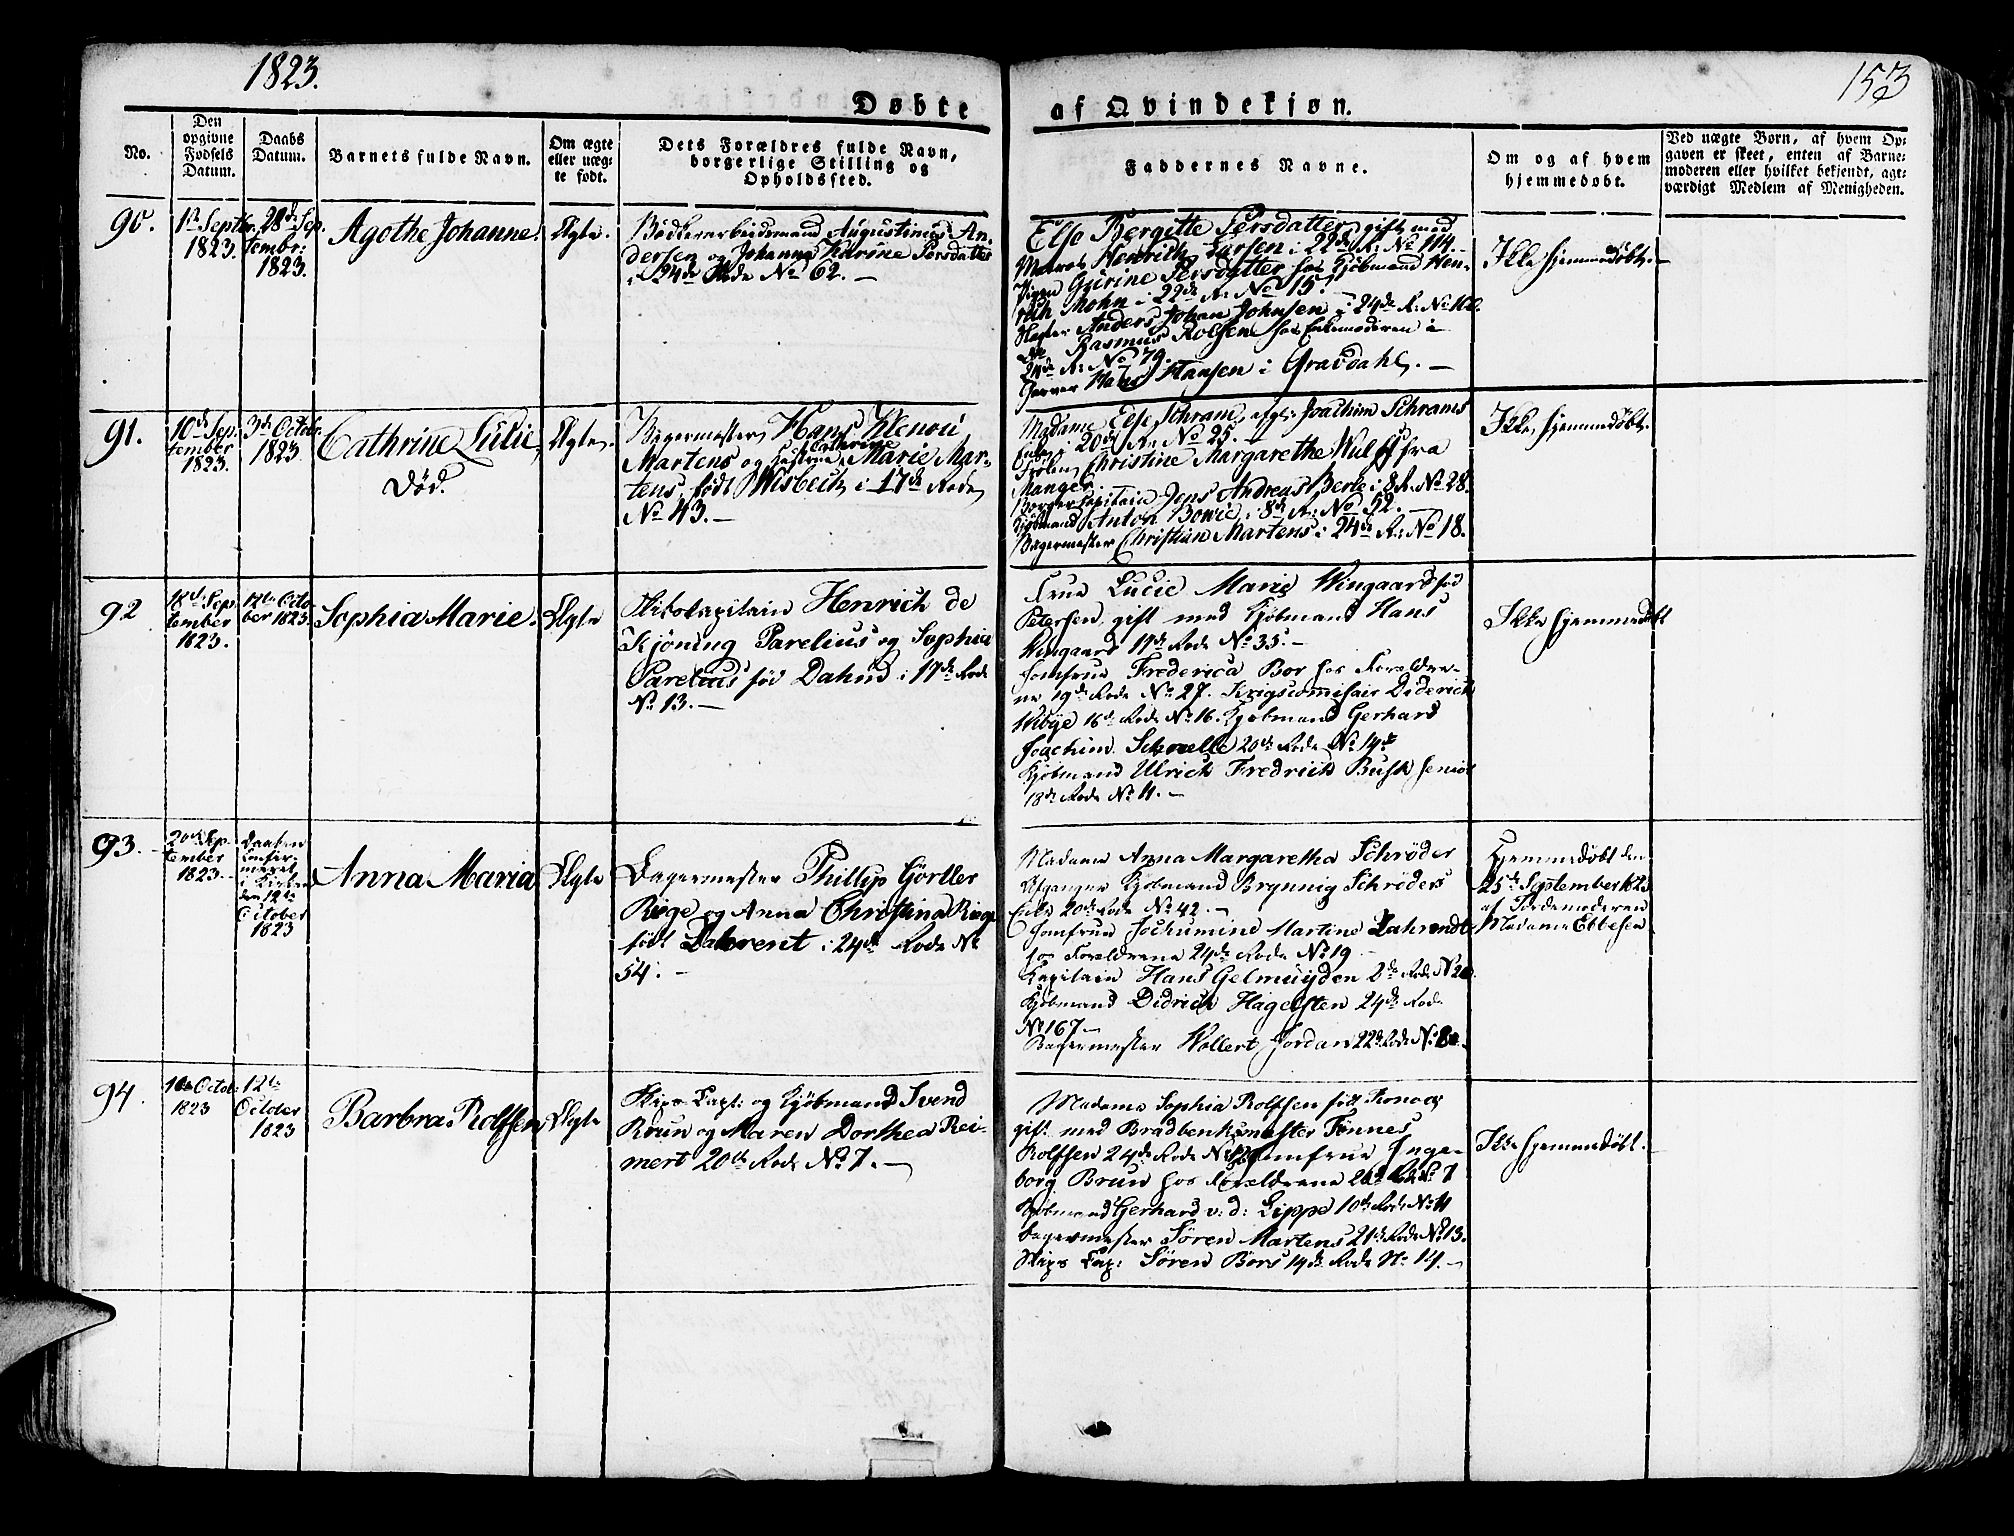 1823.
153
Døbte
af Qvindekjøn.
No.
Den
opgivne
Fødsels
Datum.
Daabs
Datum.
Barnets fulde Navn.
Om ægte
eller uæg-
te født.
Dets Forældres fulde Navn,
borgerlige Stilling og
Opholdssted.
Faddernes Navne.
Om og af hvem
hjemmedøbt.
Ved uægte Børn, af hvem Op-
gaven er skeet, enten af Barne-
moderen eller hvilket bekjendt, agt-
værdigt Medlem af Menigheden.
90.
1ste Septbr.
1823.
28de Sep-
tembr:
1823.
Agothe Johanne.
Ægte.
Bødkerarbeidsmand Augustinus An-
dersen og Johanna Karine Persdatter
i 24de Rode No 62. —
Else Bergitte Persdatter, gift med
Henrich Larsen i 22de R: No 114.
Pigen Gurine Persdatter hos Kjøbmand Hen-
rich Mohn i 22de R: No 15.
Anders Johan Johnsen i 24de R: No 162.
Rasmus Rolfsen hos Enkemoderen i
24de R: No 79.
Garver Hans Hansen i Gravdahl. —
Ikke hjemmedøbt. —
91.
10de Sep-
tember
1823.
3de Octobr.
1823.
Cathrine Lulie,
Død.
Ægte.
Bagermester Hans Klenou
Martens og Hustrue Cathrine Marie Mar-
tens, født Wisbech i 17de Rode
No 43. —
Madame Else Schram, afgl: Joachim Schrams
Enke i 20de R: No 25. —
Frølen Christine Margarethe Wulff fra
Manger
Borgerkapitain Jens Andreas Berle i 8 R: No 28.
Kjøbmand Anton Bowie, i 8de R: No 52.
Bagermester Christian Martens i 24de R: No 18.
Ikke hjemmedøbt.
92
18de Sep-
tember
1823.
12te Octo-
ber 1823.
Sophia Marie.
Ægte
Skibskapitain Henrich de
Kjøning Parelius og Sophia
Parelius fød Dahnd i 17de Rode
No 13. —
Frue Lucie Marie Wingaard fød
Petersen gift med Kjøbmand Hans
Wingaard 17de Rode No 35. —
Jomfrue Frederica Bor hos Forældre-
ne 19de Rode No 27. Krigscomisair Diderich
Wibye 16de Rode No 16. Kjøbmand Gerhard
Joachim Schrelle 20de Rode No 14
Kjøbmand Ulrich Fredrich Busk senior
18de Rode No 11. —
Ikke hjemmedøbt
93.
20de Sep-
tember
1823. —
Daaben
confir-
meret
i Kirken
den 12te
October
1823
Anna Maria
Ægte
Bagermester Phillip Görtler
Riege og Anna Christina Riege
født Dahrent i 24de Rode No
54. —
Madame Anna Margaretha Schrøder
Afgangne Kjøbmand Brynnig Schrøders
Enke 20de Rode No 42. —
Jomfrue Jochumine Martine Dahrendt
hos Forældrene 24de Rode No 19 —
Kapitain Hans Gelmuyden 2de Rode No 20.
Kjøbmand Didrich Hagelsten 24de Rode
No 167 —
Bagermester Wollert Jordan 22de Rode No 80.
Hjemmedøbt den
25de September 1823
af Jordemoderen
Madame Ebbesen
94.
10de Octobr.
1823
12te
October
1823
Barbra Rolfsen
Ægte
Skips Capt: og Kjøbmand Svend
Brun og Maren Dorthea Rei-
mert 20de Rode No 7. —
Madame Sophia Rolfsen født
gift med Brødbenkemester Tönnes
Rolfsen 24de Rode No Jomfrue Inge-
borg Brun hos Forældrene 20de Rode No 7
Kjøbmand Gerhard v: d: Lippe 10de Rode No 11
bagermester Søren Martens 21de Rode No 13.
Skips Cap: Søren Børs 19de Rode No 14. —
Ikke hjemmedøbt.